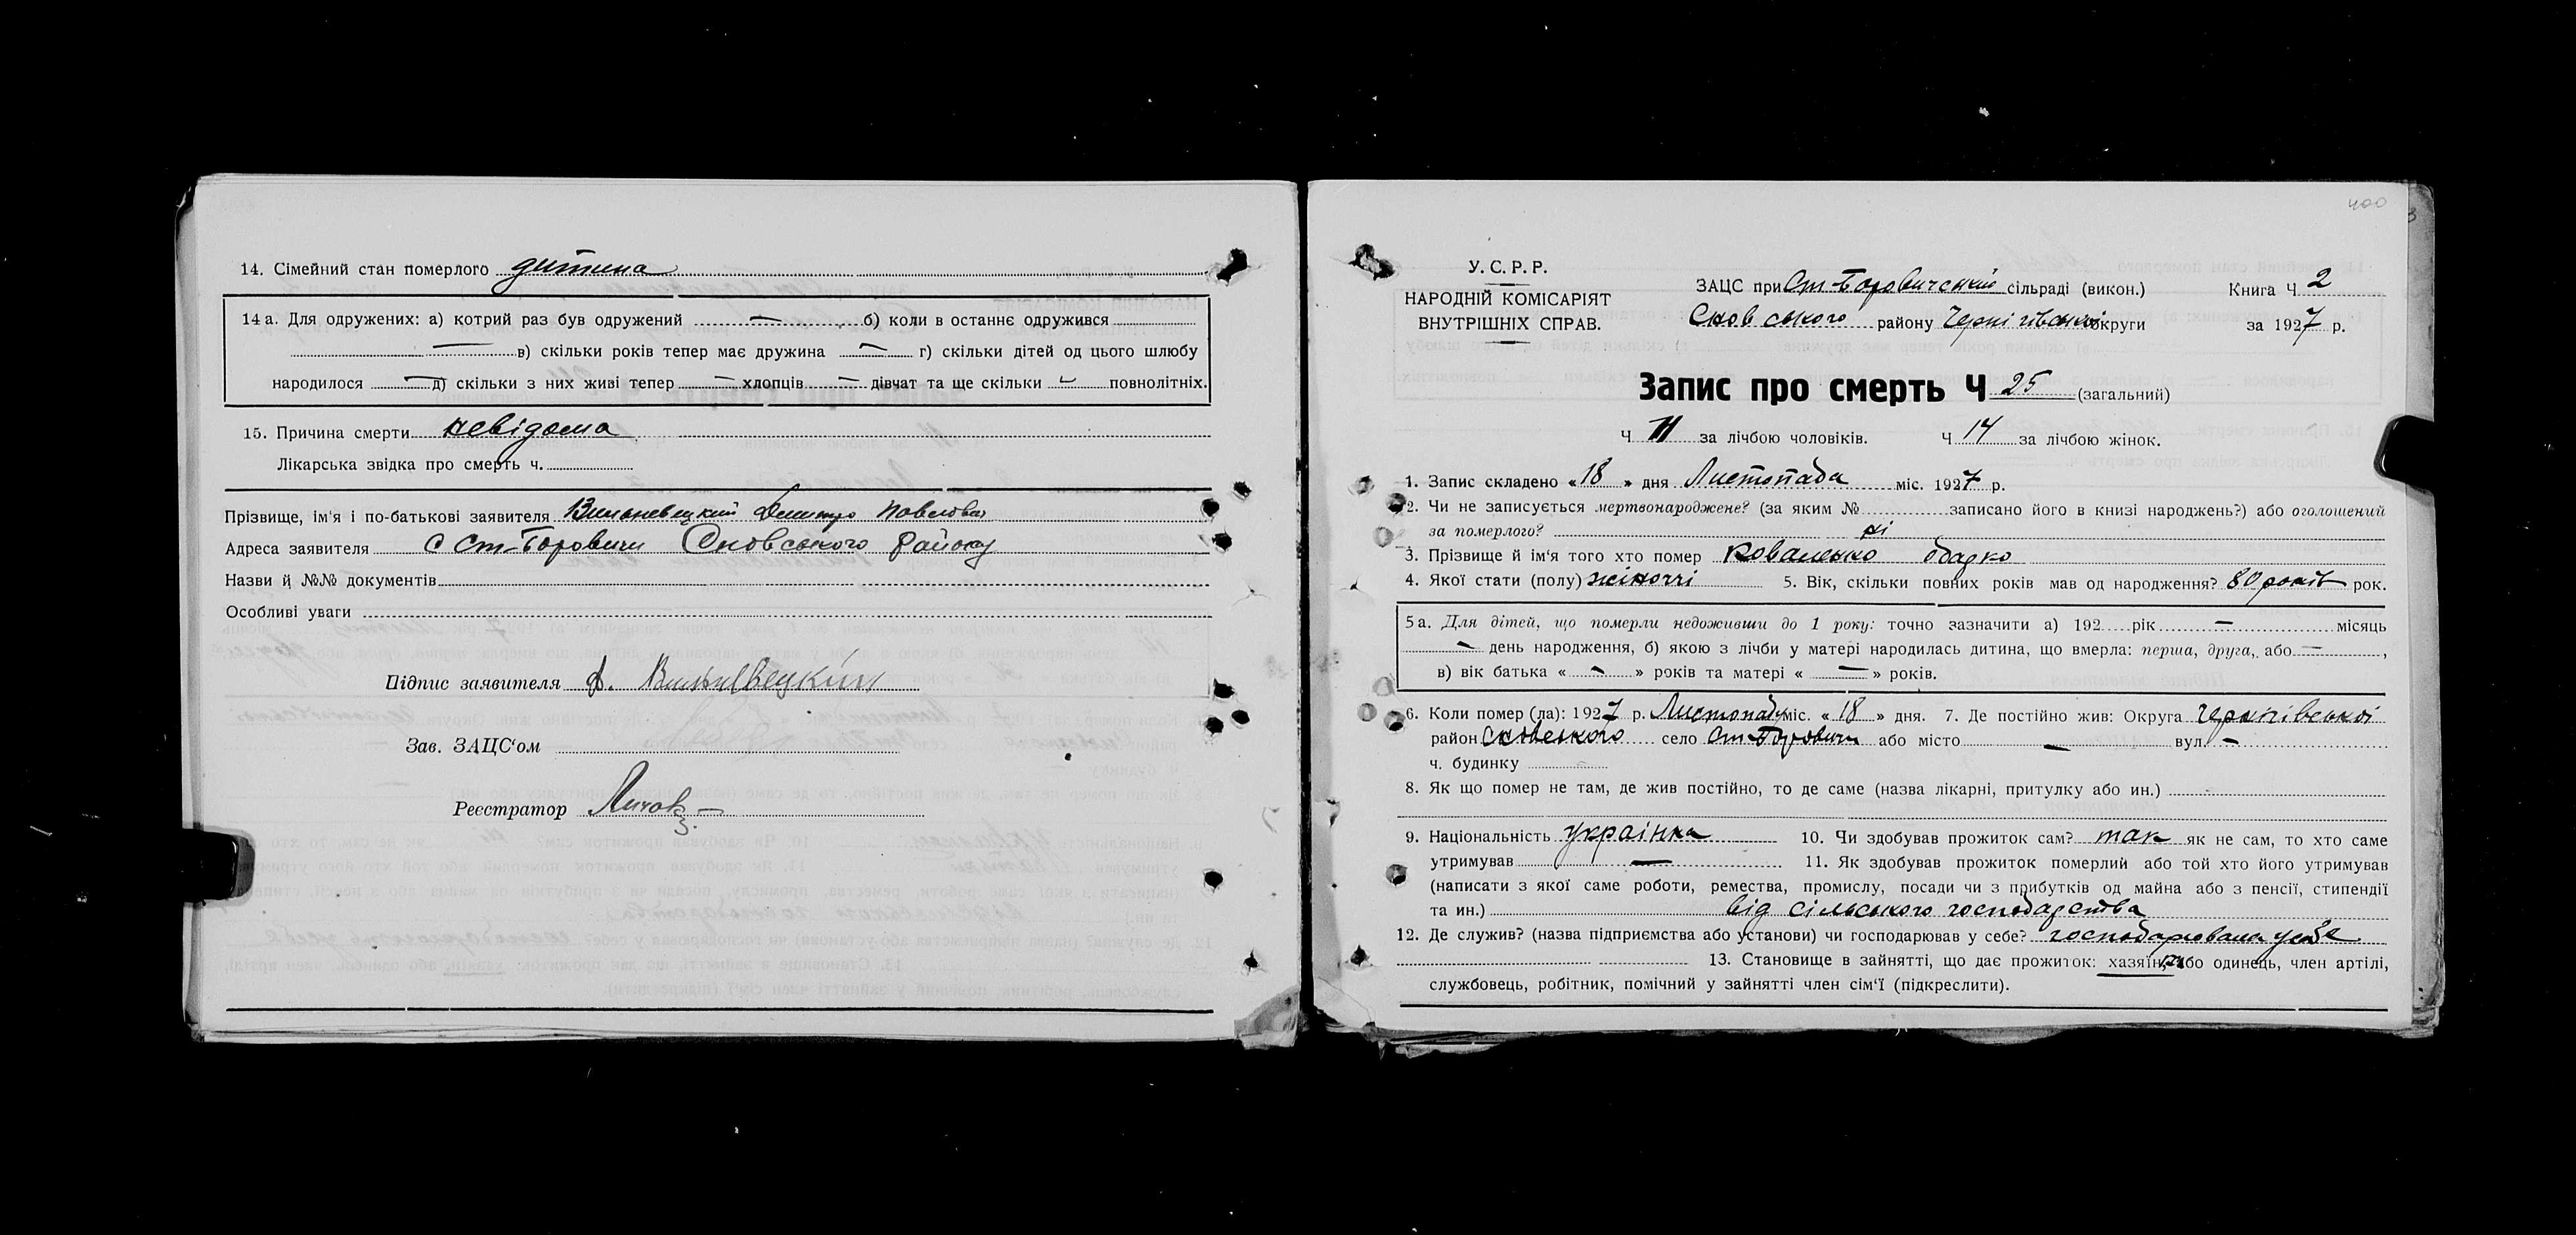 14. Сімейний стан померлого дитина
14 а. Для одружених: а) котрий раз був одружений — б) коли в останнє одружився
— в) скільки років тепер має дружина — г) скільки дітей од цього шлюбу
народилося — д) скільки з них живі тепер — хлопців — дівчат та ще скільки — повнолітніх.
15. Причина смерти невідома
Лікарська звідка про смерть ч.
Прізвище, ім'я і по-батькові заявителя Дмитро Павлович
Адреса заявителя с Ст-Боровичи Сновського району
Назви й №№ документів
Особливі уваги
Підпис заявителя
Зав. ЗАЦС'ом
Реєстратор
400
У. С. Р. Р.
НАРОДНІЙ КОМІСАРІЯТ
ВНУТРІШНІХ СПРАВ.
ЗАЦС при Ст-Боровичський сільраді (викон.) Книга Ч 2
Сновського району Чернігівської округи за 1927 р.
Запис про смерть Ч 25 (загальний)
Ч 11 за лічбою чоловіків. Ч 14 за лічбою жінок.
1. Запис складено «18» дня Листопада міс. 1927 р.
2. Чи не записується мертвонароджене? (за яким № записано його в книзі народжень?) або оголошений
за померлого? ні
3. Прізвище й ім'я того хто помер Коваленко
4. Якої стати (полу) жіноччі 5. Вік, скільки повних років мав од народження? 80 років рок.
5 а. Для дітей, що померли недоживши до 1 року: точно зазначити а) 192 рік — місяць
— день народження, б) якою з лічби у матері народилась дитина, що вмерла: перша, друга, або —,
в) вік батька « — » років та матері « — » років.
6. Коли помер (ла): 1927 р. Листопаду міс. «18» дня. 7. Де постійно жив: Округа Чернігівської
район Сновського село Ст-Боровичи або місто — вул. —
ч. будинку
8. Як що помер не там, де жив постійно, то де саме (назва лікарні, притулку або ин.)
9. Національність українка 10. Чи здобував прожиток сам? так як не сам, то хто саме
утримував — 11. Як здобував прожиток померлий або той хто його утримував
(написати з якої саме роботи, ремества, промислу, посади чи з прибутків од майна або з пенсії, стипендії
та ин.) від сільського господарства
12. Де служив? (назва підприємства або установи) чи господарював у себе? господарювала у себе
13. Становище в зайнятті, що дає прожиток: хазяїн, або одинець, член артілі,
службовець, робітник, помічний у зайнятті член сім'ї (підкреслити).